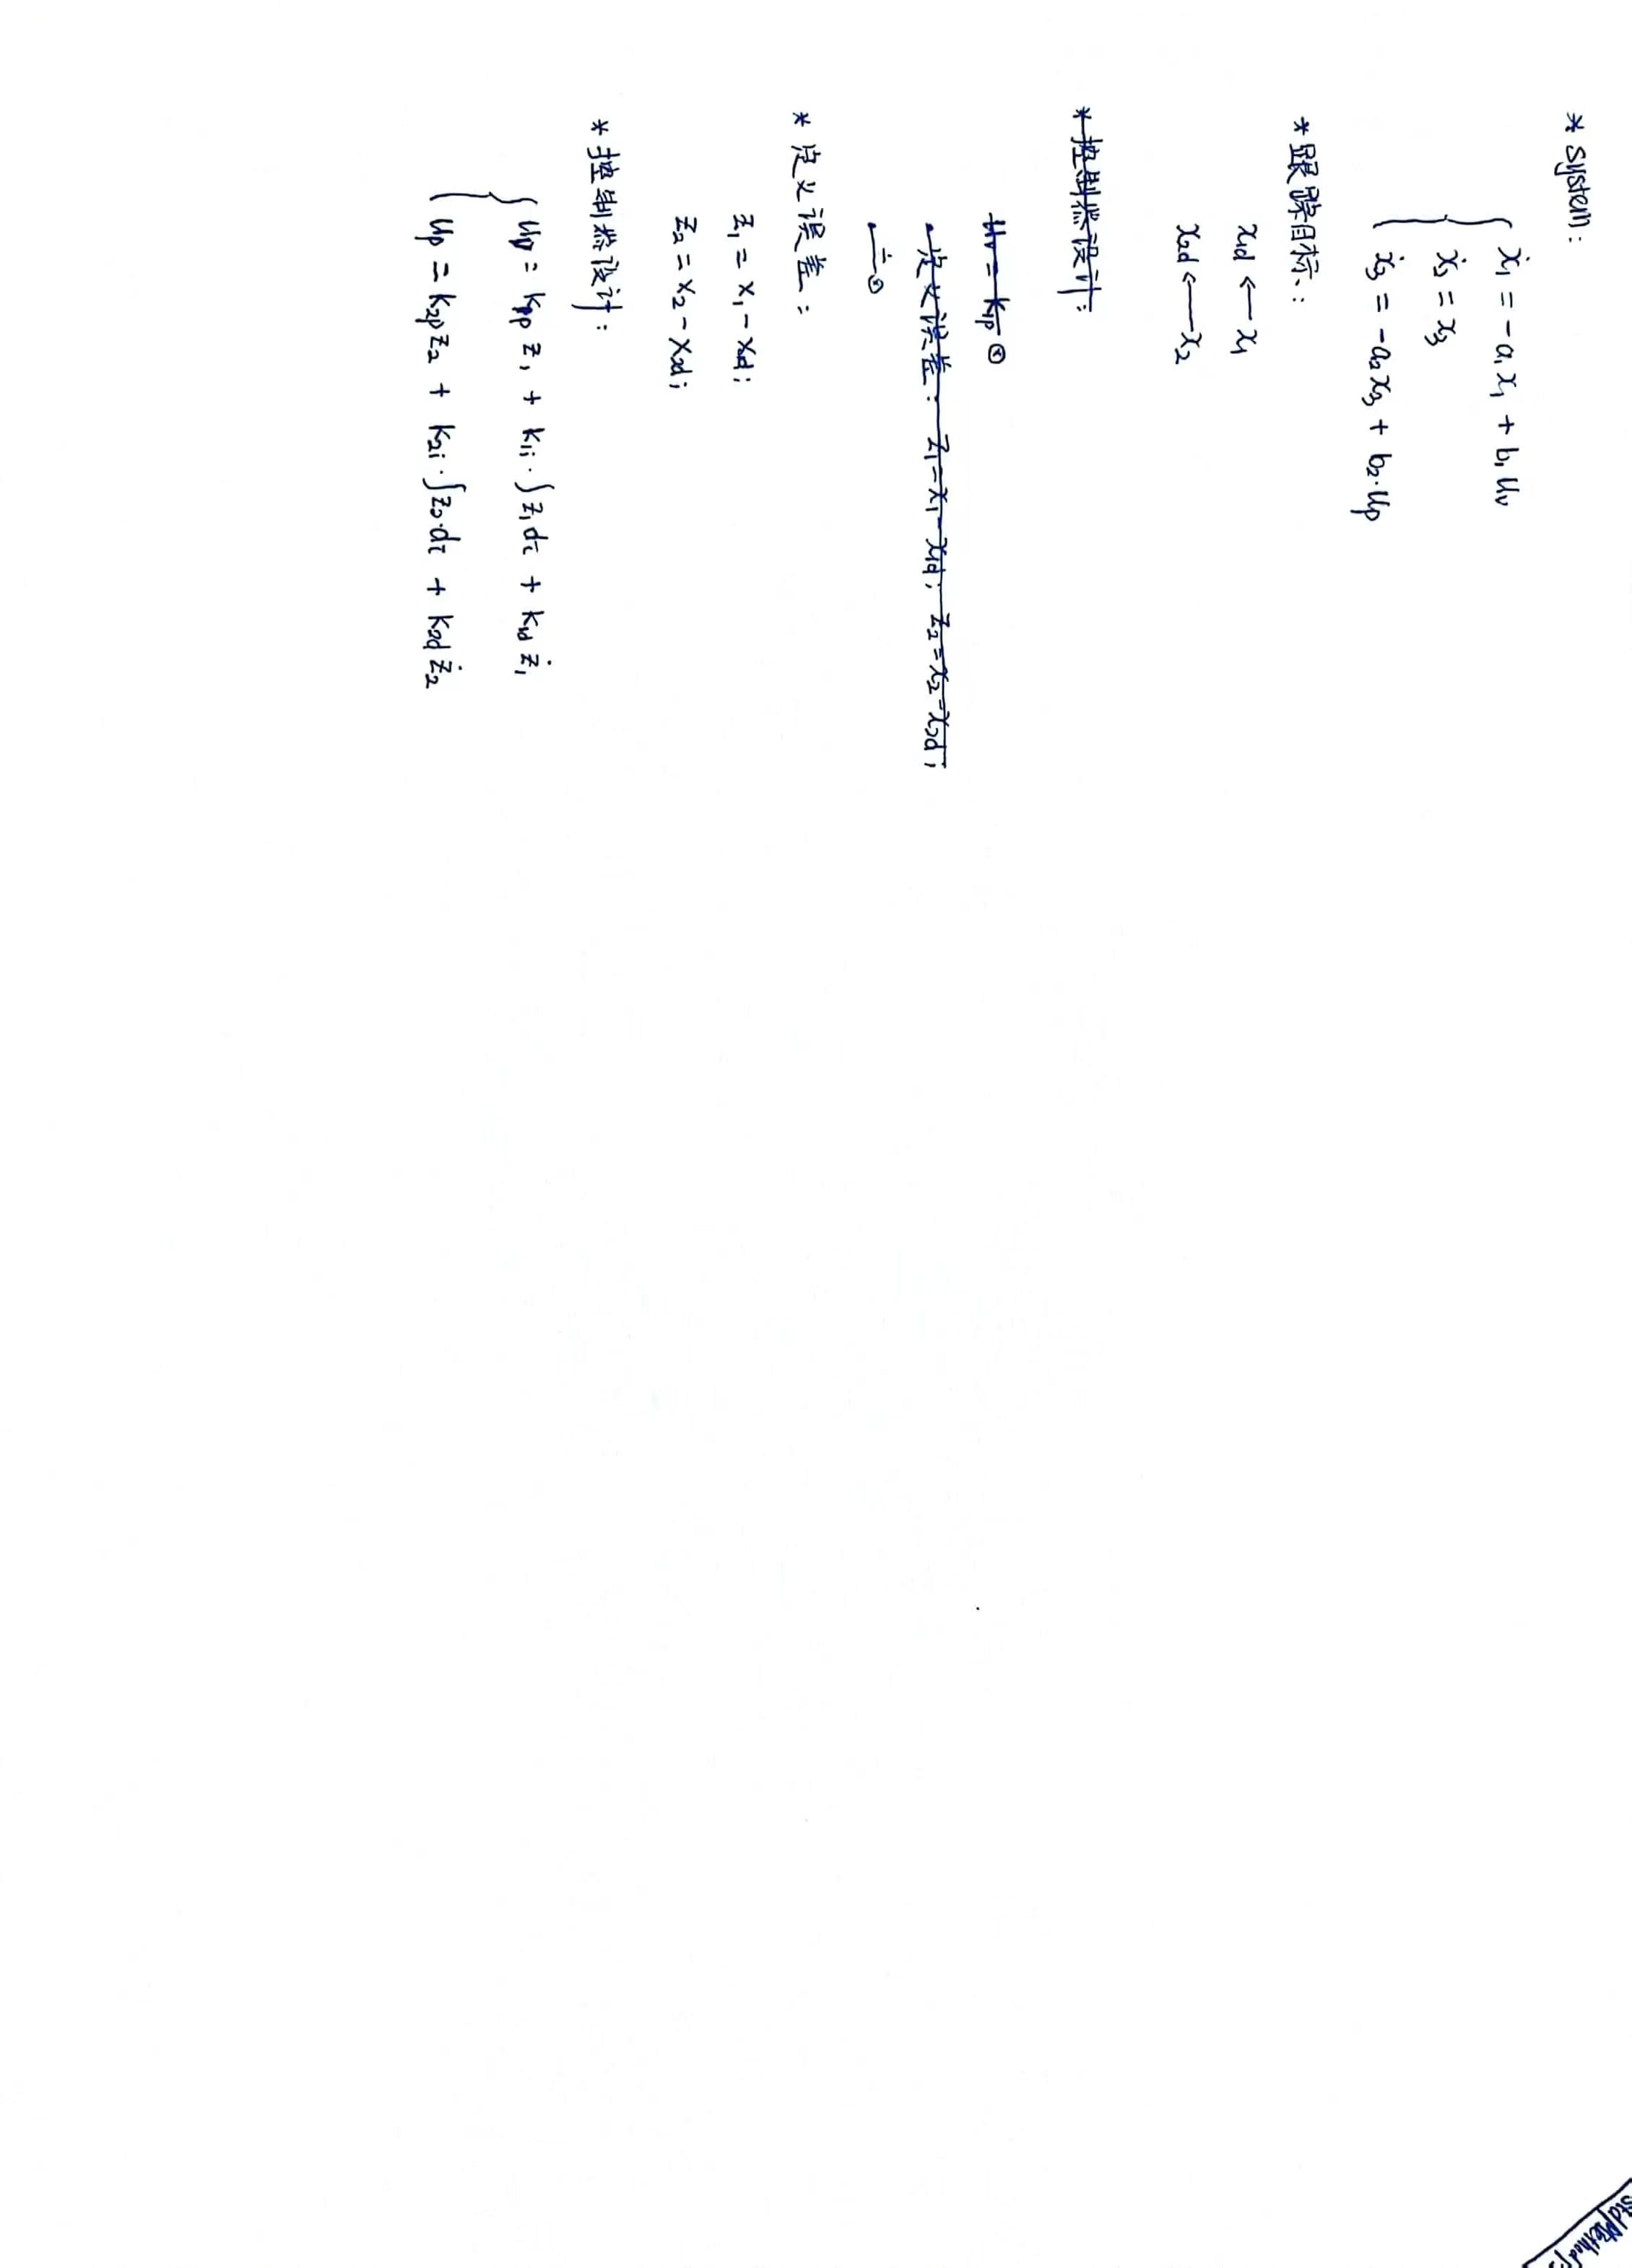 * system:
ẋ₁ = -a₁x₁ + b₁u_v
ẋ₂ = x₃
ẋ₃ = -a₂x₃ + b₂·u_p
* 跟踪目标:
x₁d ← x₁
x₂d ← x₂
* 控制器设计:
u_v = k₁p
• 定义误差: z₁ = x₁ - x₁d; z₂ = x₂ - x₂d;
* 定义误差:
z₁ = x₁ - x₁d;
z₂ = x₂ - x₂d;
* 控制器设计:
u_v = k₁p z₁ + k₁i·∫z₁dτ + k₁d ż₁
u_p = k₂p z₂ + k₂i·∫z₂·dτ + k₂d ż₂